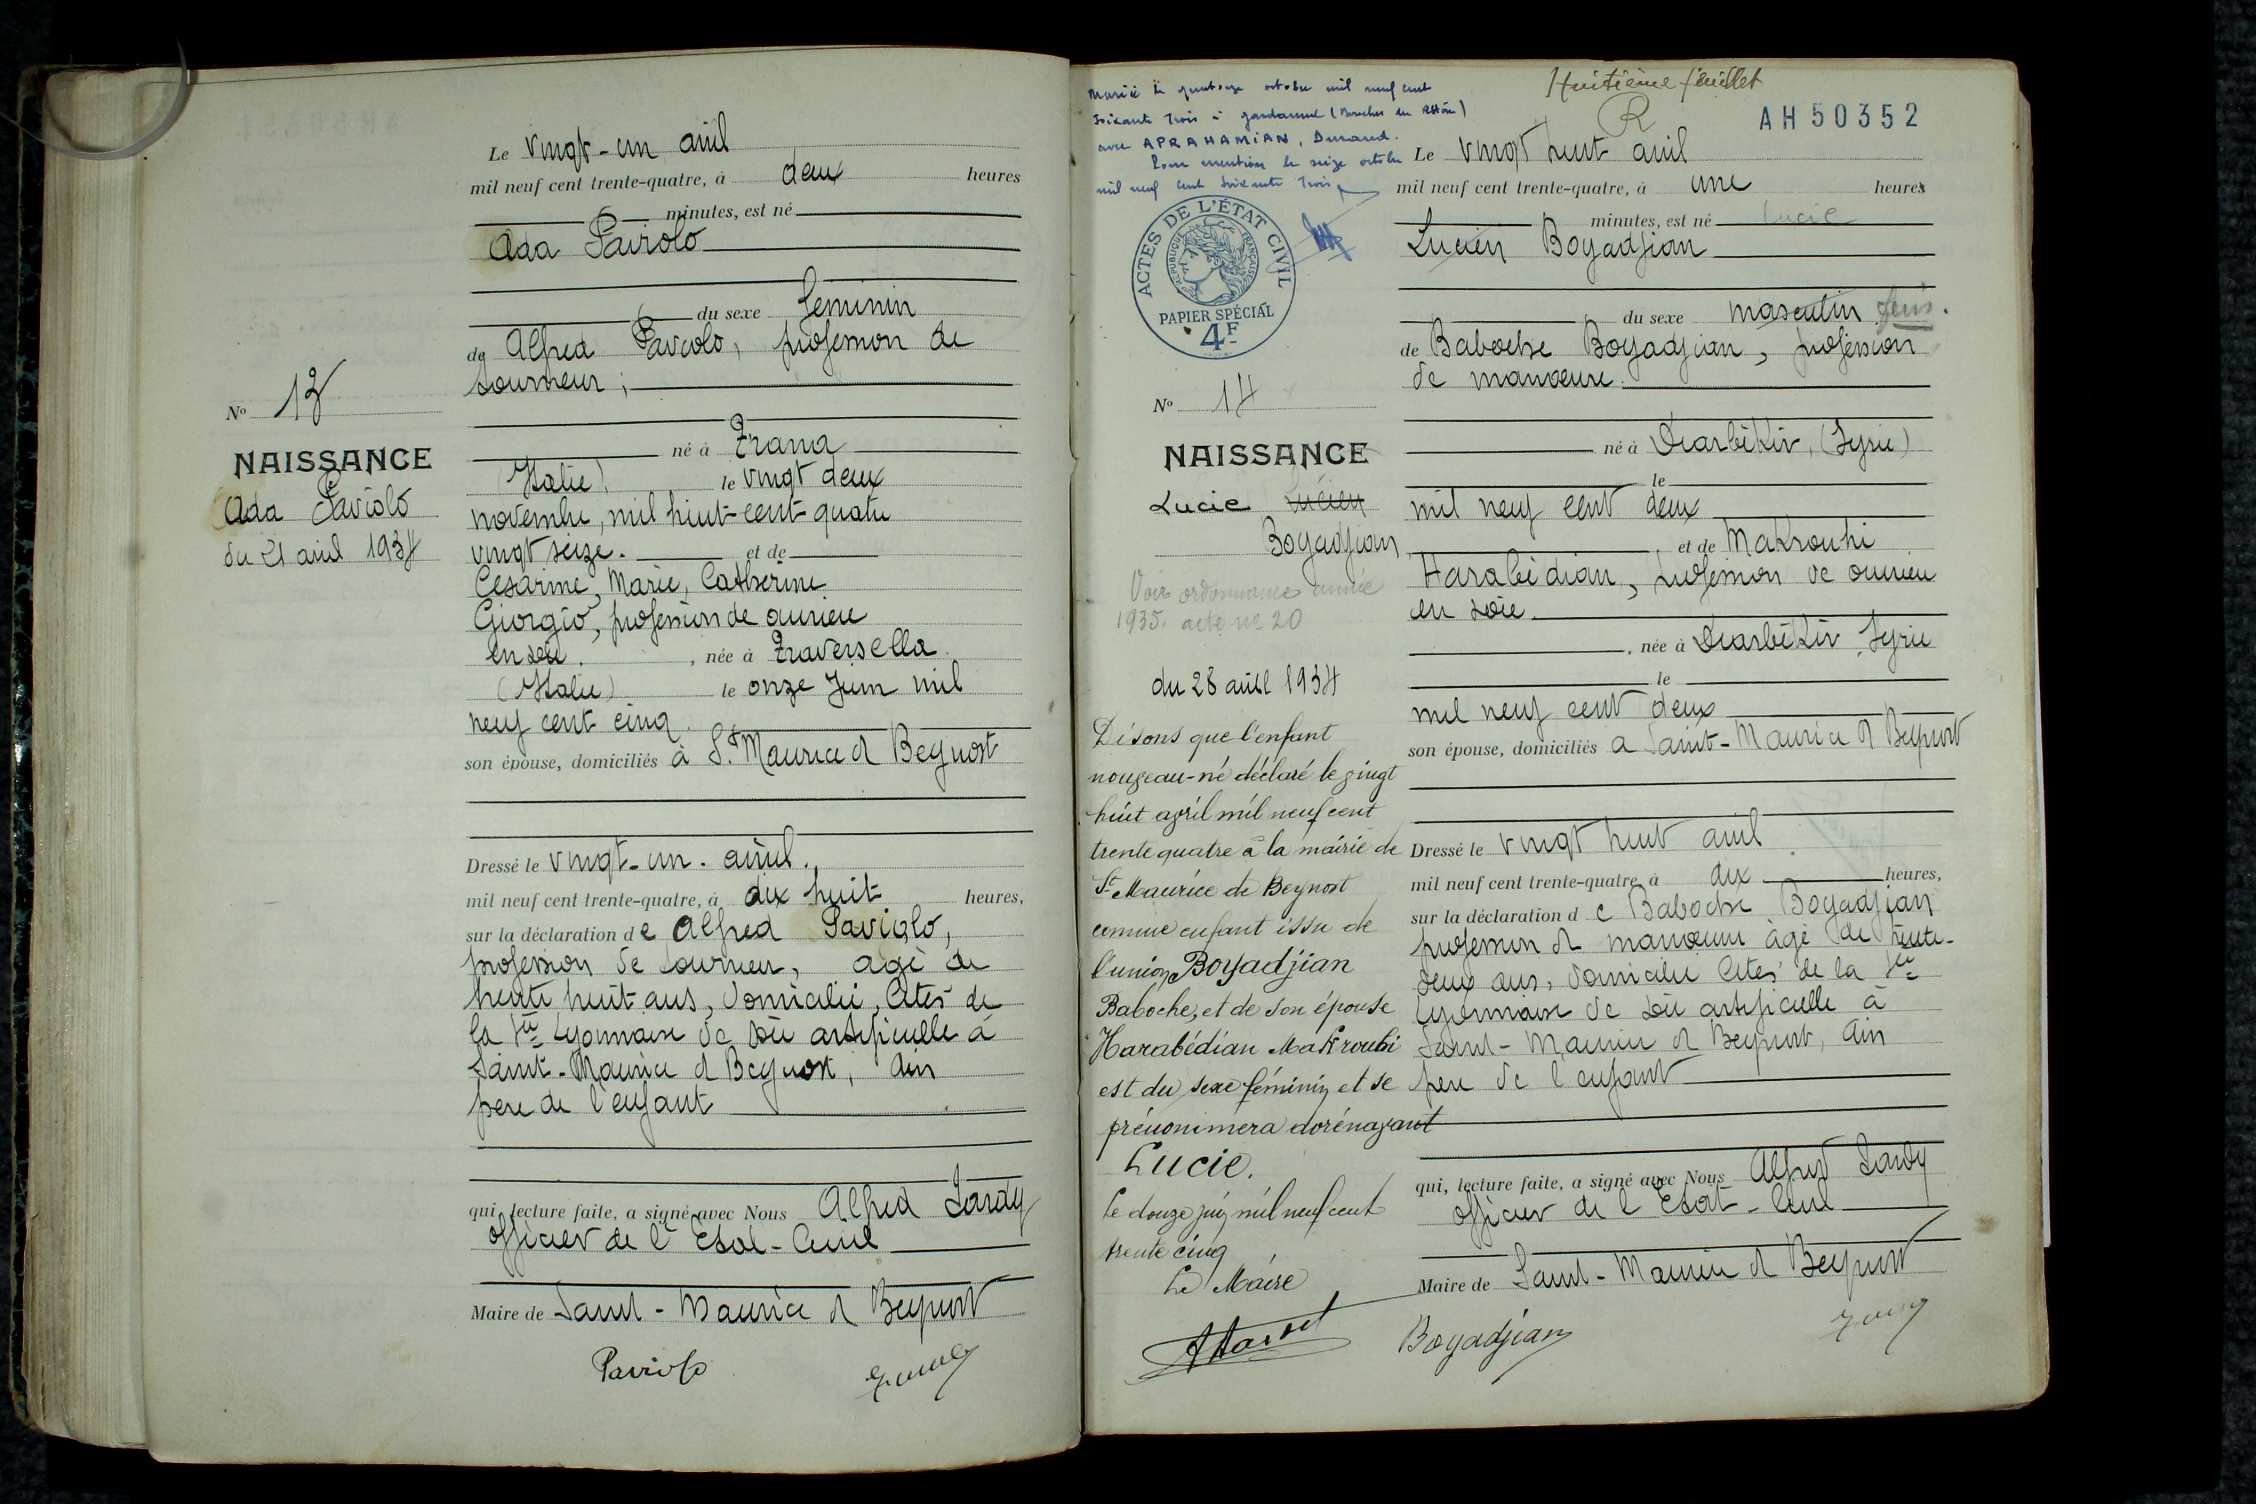 Le vingt-un avril
mil neuf cent trente-quatre, à deux heures
minutes, est né
Ada Paviolo
du sexe féminin
de Alfred Paviolo, profession de
tourneur ;
né à Trana
(Italie) le vingt deux
novembre, mil huit-cent-quatre
vingt seize. et de
Césarine, Marie, Catherine
Giorgio, profession de ouvrière
en soie. , née à Traversella
(Italie) le onze Juin mil
neuf cent cinq.
son épouse, domiciliés à St Maurice d Beynost
No 13
NAISSANCE
Ada Paviolo
du 21 avril 1934
Dressé le vingt-un. avril.
mil neuf cent trente-quatre, à dix huit heures,
sur la déclaration de Alfred Paviolo,
profession de tourneur, agé de
trente huit ans, domicilié, Cités de
la Sté Lyonnaise de soie artificielle à
Saint-Maurice d Beynost, Ain
père de l'enfant
qui, lecture faite, a signé avec Nous Alfred Lardy
officier de l'Etat-Civil
Maire de Saint-Maurice d Beynost
Paviolo
Huitième feuillet
R
AH 50352
Marié le quatorze octobre mil neuf cent
soixante trois à Gardanne (Bouches du Rhône)
avec APRAHAMIAN, Durand.
Pour mention le seize octobre
mil neuf cent soixante trois
ACTES DE L'ÉTAT CIVIL
RÉPUBLIQUE FRANÇAISE
PAPIER SPÉCIAL
4F
No 14
NAISSANCE
Lucie Lucien
Boyadjian
Voir ordonnance année
1935. acte no 20
du 28 avril 1934
Disons que l'enfant
nouveau-né déclaré le vingt
huit avril mil neuf cent
trente quatre à la mairie de
St Maurice de Beynost
comme enfant issu de
l'union Boyadjian
Baboche, et de son épouse
Harabédian Makrouhi
est du sexe féminin et se
prénommera dorénavant
Lucie.
Le douze juin mil neuf cent
trente cinq
Le Maire
Le vingt huit avril
mil neuf cent trente-quatre, à une heures
minutes, est né Lucie
Lucien Boyadjian
du sexe masculin fém.
de Baboche Boyadjian, profession
de manoeuvre.
né à Diarbékir, (Syrie)
le
mil neuf cent deux
, et de Makrouhi
Harabédian, profession de ouvrière
en soie.
, née à Diarbékir, Syrie
le
mil neuf cent deux
son épouse, domiciliés a Saint-Maurice d Beynost
Dressé le vingt huit avril
mil neuf cent trente-quatre, à dix heures,
sur la déclaration de Baboche Boyadjian
profession d manoeuvre âgé de trente-
deux ans, domicilié Cités de la Sté
Lyonnaise de soie artificielle à
Saint-Maurice d Beynost, Ain
père de l'enfant
qui, lecture faite, a signé avec Nous Alfred Lardy
officier de l'Etat-Civil
Maire de Saint-Maurice d Beynost
Boyadjian